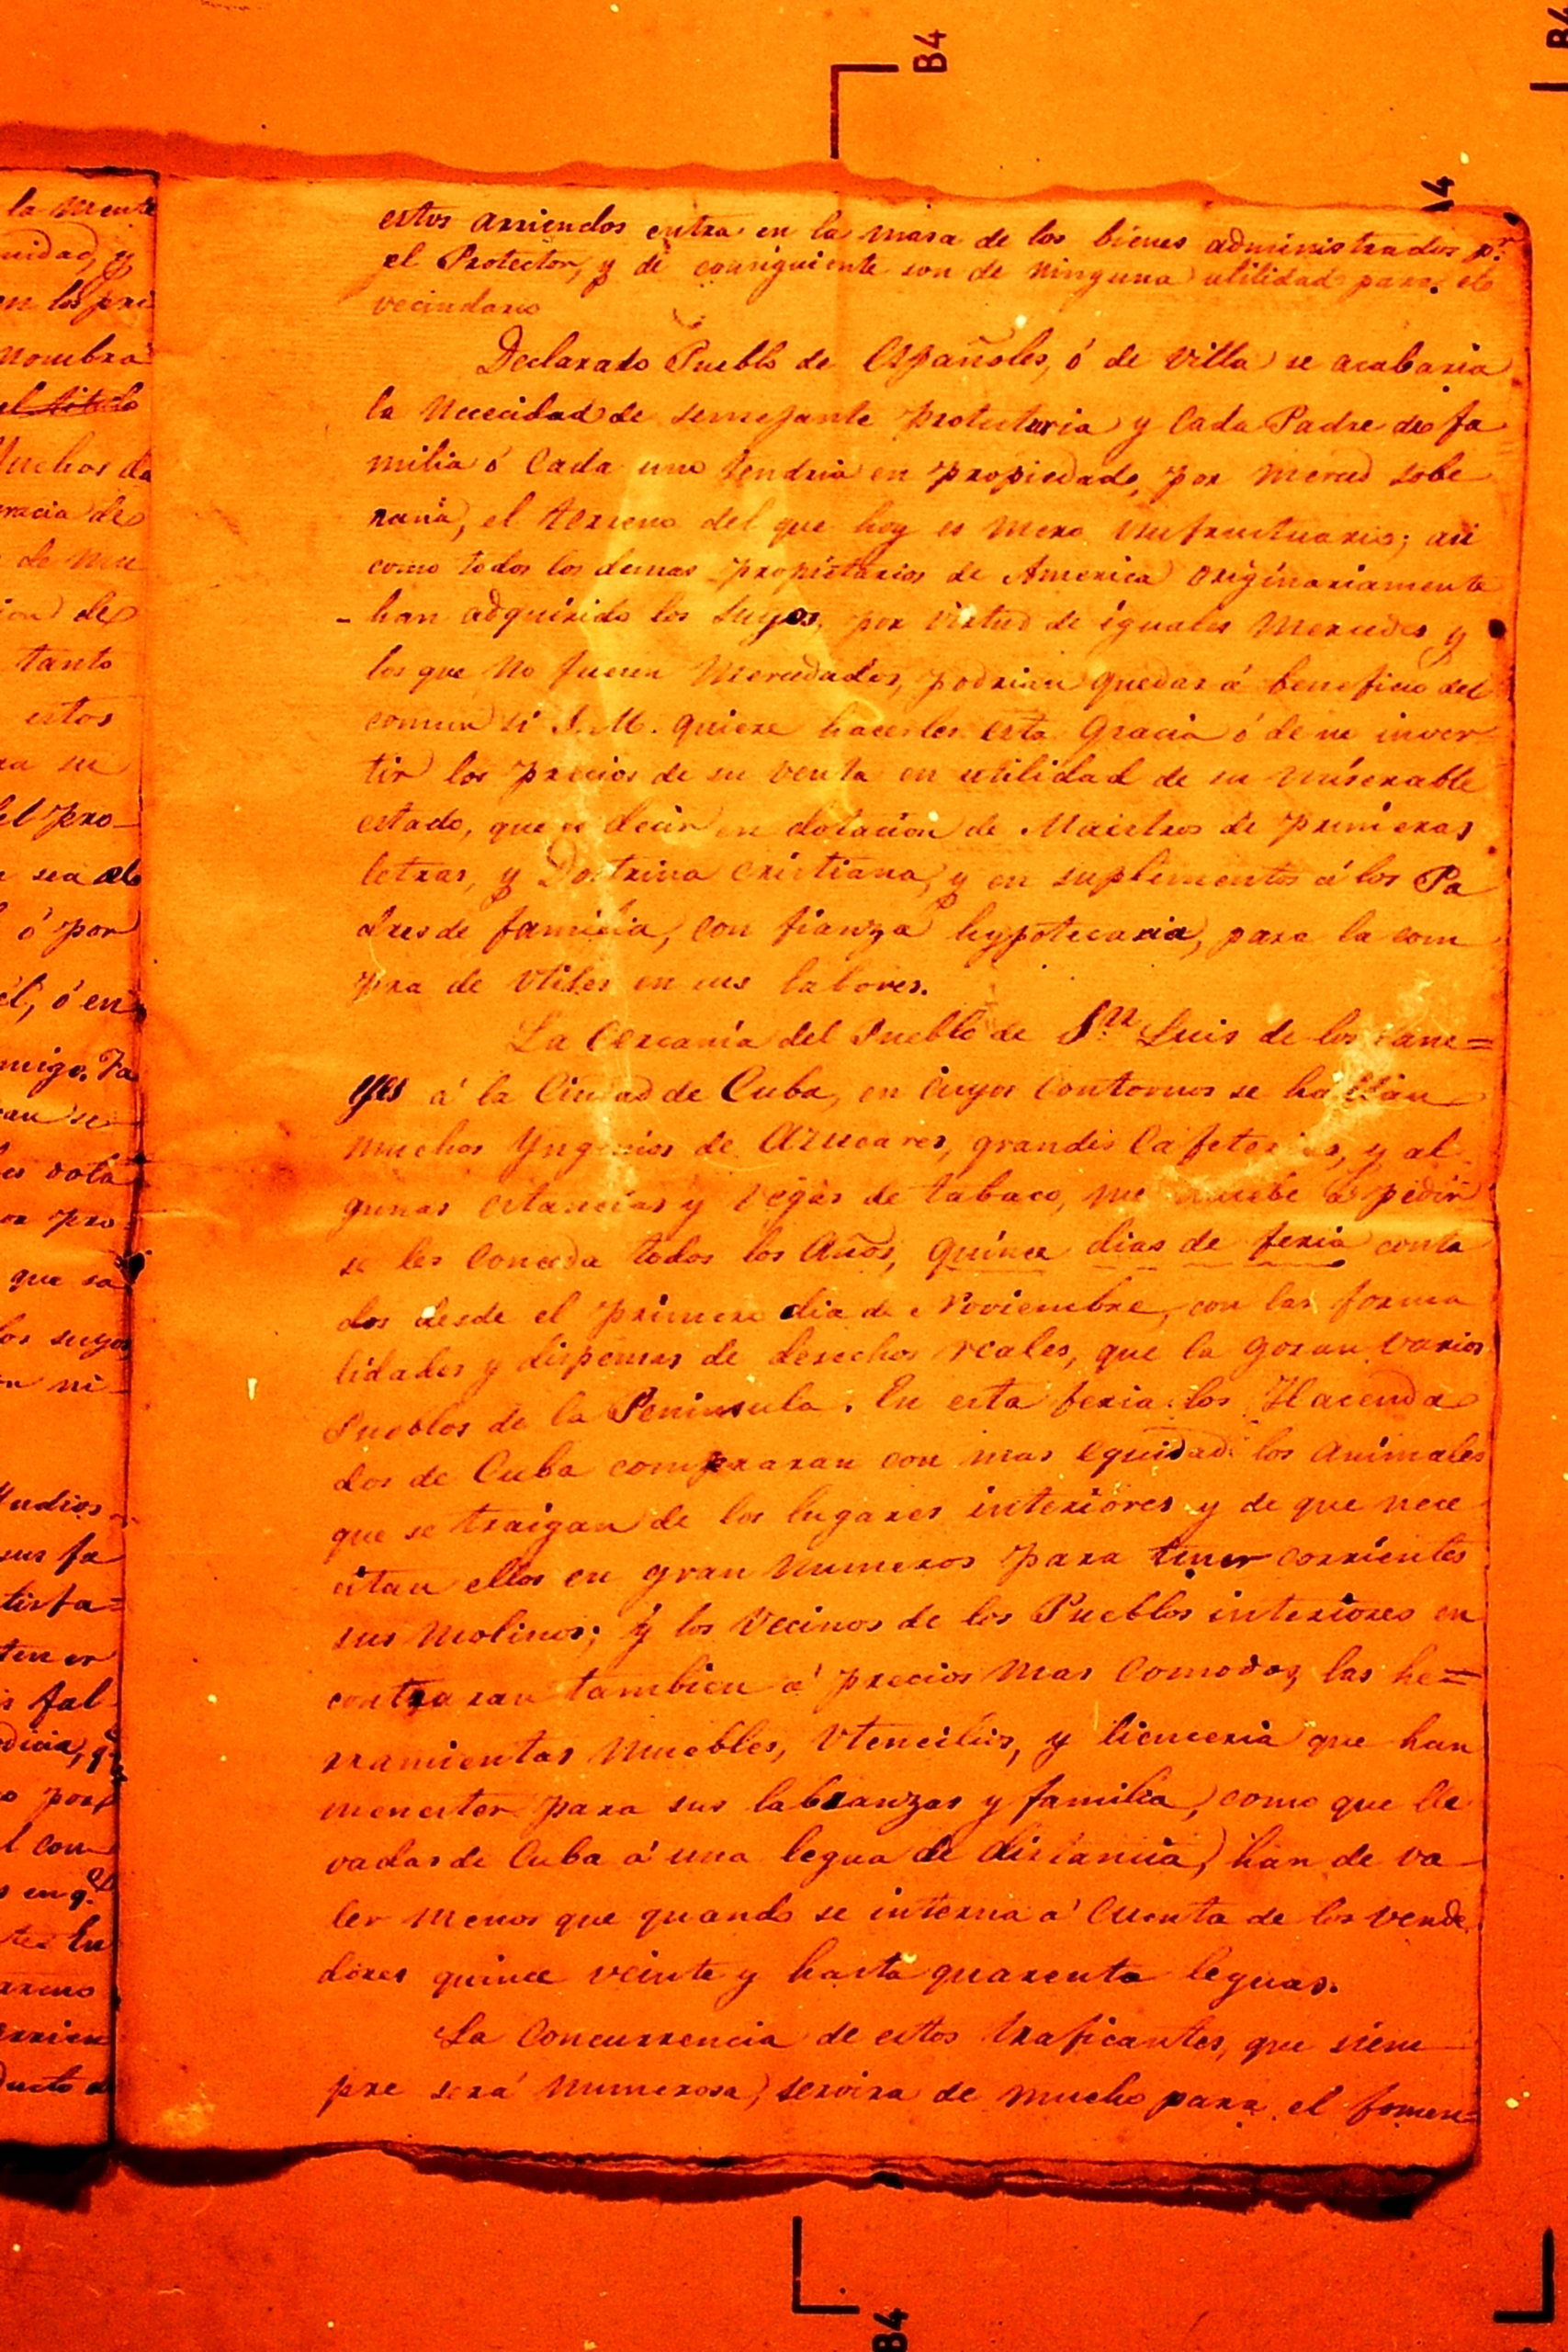 B4
B4
A4
la Mente
nidad, y
en los pri
Nombra
el titulo
Muchos da
gracia de
de Mu
ion de
tanto
estos
ra su
el pro-
sea el
ó por
él, ó en
migo. Fa
can se
es dota
or pro
que sa
los suyos
n ni-
Yndios
sus fa
tisfa=
tener
s fal
dicia, q.e
o por
l con
s en q.e
tes In
arrien
ducto
estos arriendos entra en la masa de los bienes administrados p.r
el Protector, y de consiguiente son de ninguna utilidad para el
vecindario
Declarado Pueblo de Españoles, ó de Villa se acabaria
la Nececidad de semejante protecturia y Cada Padre de fa
milia ó Cada uno tendria en propiedad, por merced sobe
rana, el terreno del que hoy es mero Usufructuario; asi
como todos los demas propietarios de America originariamente
- han adquirido los suyos, por virtud de iguales Mercedes, y
los que No fueren Mercedados, podrian quedar á beneficio del
comun si S. M. quiere hacerles esta Gracia ó de ne inver
tir los precios de su venta en utilidad de su miserable
estado, que es decir en dotacion de Maistros de primeras
letras, y Dostrina cristiana, y en suplementos á los Pa
dres de familia, con fianza hypotecaria, para la com
pra de Utiles en sus labores.
La Cercanía del Pueblo de S.n Luis de los Cane=
yes á la Ciudad de Cuba, en cuyos contornos se hallan
muchos Yngenios de Azucares, grandes Cafeterias, y al
gunas estancias y Vegas de tabaco, me muebe á pedir
se les conceda todos los Años, quince dias de feria conta
dos desde el primero dia de Noviembre, con las forma
lidades y dispensas de derechos reales, que la gozan varios
Pueblos de la Peninsula. En esta feria los Hacenda
dos de Cuba compraran con mas equidad los animales
que se traigan de los lugares interiores y de que nece
citan ellos en gran numeros para tener corrientes
sus Molinos; y los Vecinos de los Pueblos interiores en
contraran tambien á precios mas Comodos, las he=
rramientas Muebles, Utencilios, y lienceria que han
menester para sus labranzas y familia, como que lle
vadas de Cuba á una legua de distancia, han de va
ler menos que quando se interna á Cuenta de los vende
dores quince veinte y hasta quarenta leguas.
La Concurrencia de estos traficantes, que siem
pre será Numerosa, servira de mucho para el fomen=
B4